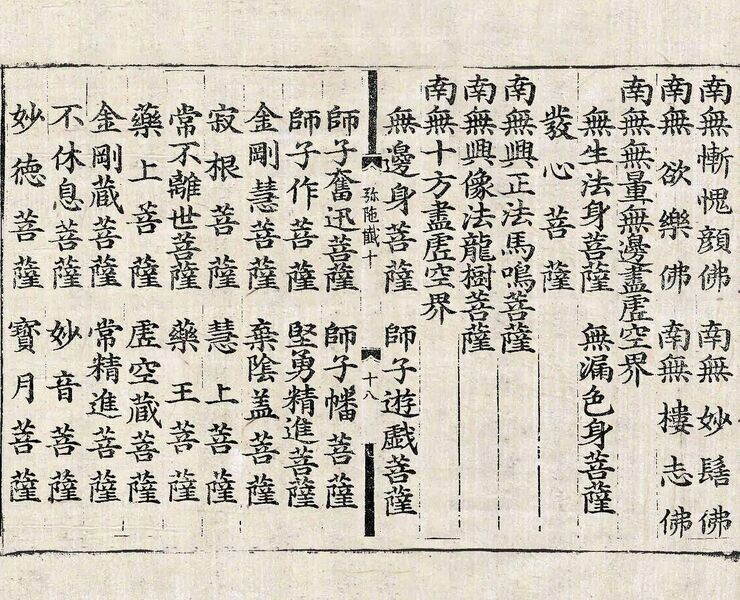 南無慚愧顏佛　南無妙髻佛
南無欲樂佛　南無樓志佛
南無無量無邊盡虗空界
無生法身菩薩　無漏色身菩薩
發心菩薩
南無興正法馬鳴菩薩
南無興像法龍樹菩薩
南無十方盡虗空界
無邊身菩薩　師子遊戲菩薩
弥陁懴十　十八
師子奮迅菩薩　師子幡菩薩
師子作菩薩　堅勇精進菩薩
金剛慧菩薩　棄陰盖菩薩
寂根菩薩　慧上菩薩
常不離世菩薩　藥王菩薩
藥上菩薩　虗空藏菩薩
金剛藏菩薩　常精進菩薩
不休息菩薩　妙音菩薩
妙德菩薩　寶月菩薩